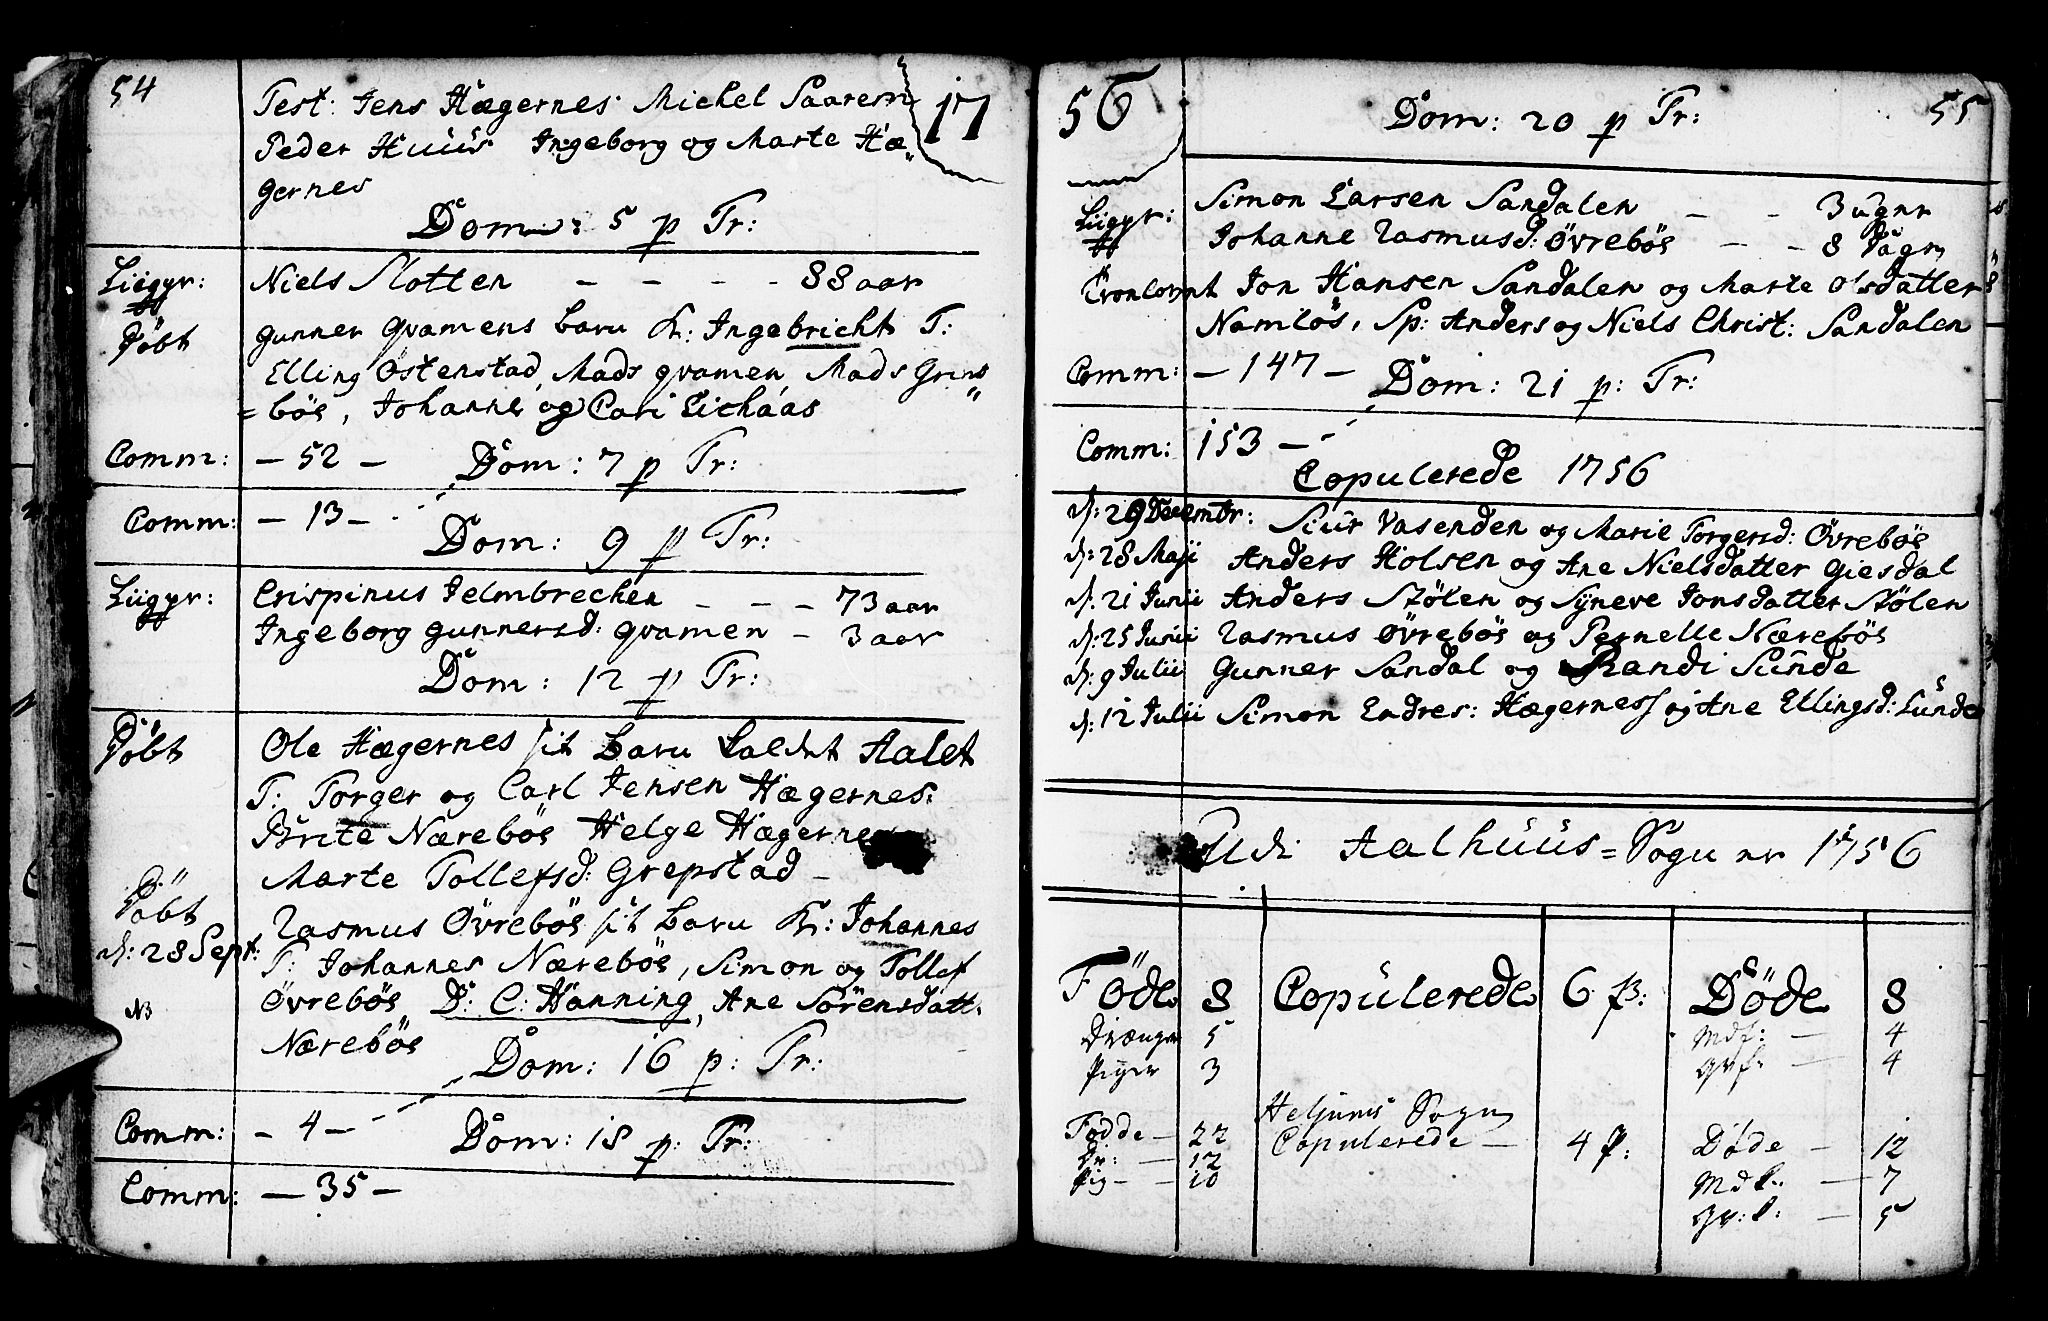 54
17
Test: Jens Hægernes Michel Paarem
Peder Huus Ingeborg og Marte Hæ„
gernes
Dom: 5 p Tr:
Liigpr: Niels Slotten — — — — 88 aar
Döbt Gunner Qvamens barn K: Ingebricht T:
Elling Östenstad, Mads Qvamen, Mads Grims„
=böe, Johanne og Cari Eichaas
Comm: — 52 — Dom: 7 p Tr:
Comm: — 13 — Dom: 9 p Tr:
Liigpr: Crispinus Jelmbrechen — — — 73 aar
Ingeborg Gunnersd: Qvamen — 3 aar
Dom: 12 p Tr:
Döbt Ole Hægernes sit barn kaldet Aalet
T: Torger og Carl Jensen Hægernes.
Brite Næreböe Helge Hægernes
Marte Tollefsd: Grepstad —
Döbt Rasmus Övreböe sit barn K: Johannes
d: 28 Sept: T: Johannes Næreböe, Simon og Tollef
NB Övreböe D: C: Hanning, Ane Sörensdatt.
Næreböe Dom: 16 p: Tr:
Comm: — 4 — Dom: 18 p: Tr:
Comm: — 35 —
56
55
Dom: 20 p Tr:
Liigpr: Simon Larsen Sandalen — — 3 ugnr
Johanne Rasmusd: Övreböe — — 8 Dagr
Tronlovat Jon Hansen Sandalen og Marte Olsdatter
Namlös, Sp: Anders og Niels Christ: Sandalen
Comm: — 147 — Dom: 21 p: Tr:
Comm: 153 —
Copulerede 1756
d: 29 Decembr: Siur Vasenden og Marie Torgersd: Övreböe
d: 28 Maji Anders Holsen og Ane Nielsdatter Giesdal
d: 21 Junii Anders Stölen og Syneve Jonsdatter Stölen
d: 25 Junii Rasmus Övreböe og Pernelle Nærebö̈e
d: 9 Julii Gunner Sandal og Randi Sunde
d: 12 Julii Simon Endres: Hægernes og Ane Ellingsd: Lunde
Udi Aalhuus=Sogn er 1756
Föde 8 Copulerede 6 p: Döde 8
Drænge 5 Mdk: — 4
Piger 3 Qvk: — 4
Heljums Sogn
Fødde — 22 Copulerede — 4 p: Døde — 12
Dr: — 12 Mdk: — 7
Pig — — 10 Qv:k: — 5